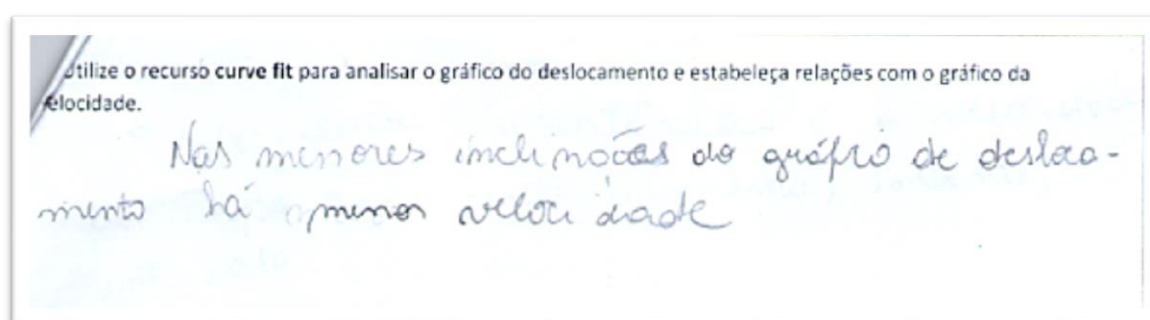 Utilize o recurso curve fit para analisar o gráfico do deslocamento e estabeleça relações com o gráfico da
elocidade.
Nas menores inclinações do gráfico de desloca-
mento há menor velocidade